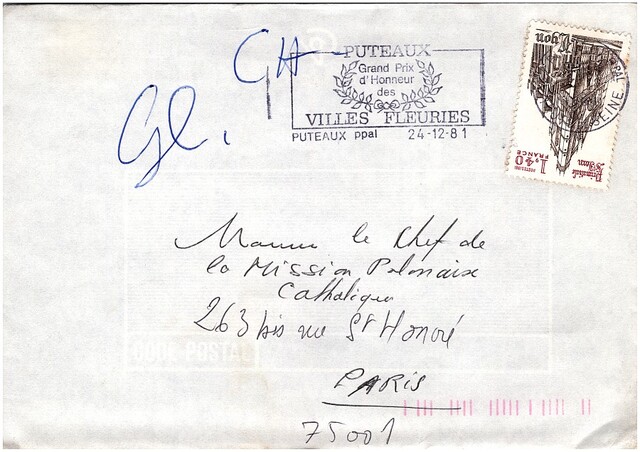 CH
Gl.
PUTEAUX
Grand Prix
d'Honneur
des
VILLES FLEURIES
PUTEAUX ppal 24-12-81
SEINE
Primatiale
St Jean
Lyon
1,40
POSTES 1981
FRANCE
Monsieur le Chef de
la Mission Polonaise
Catholique
263 bis rue St Honoré
PARIS
75001
CODE POSTAL